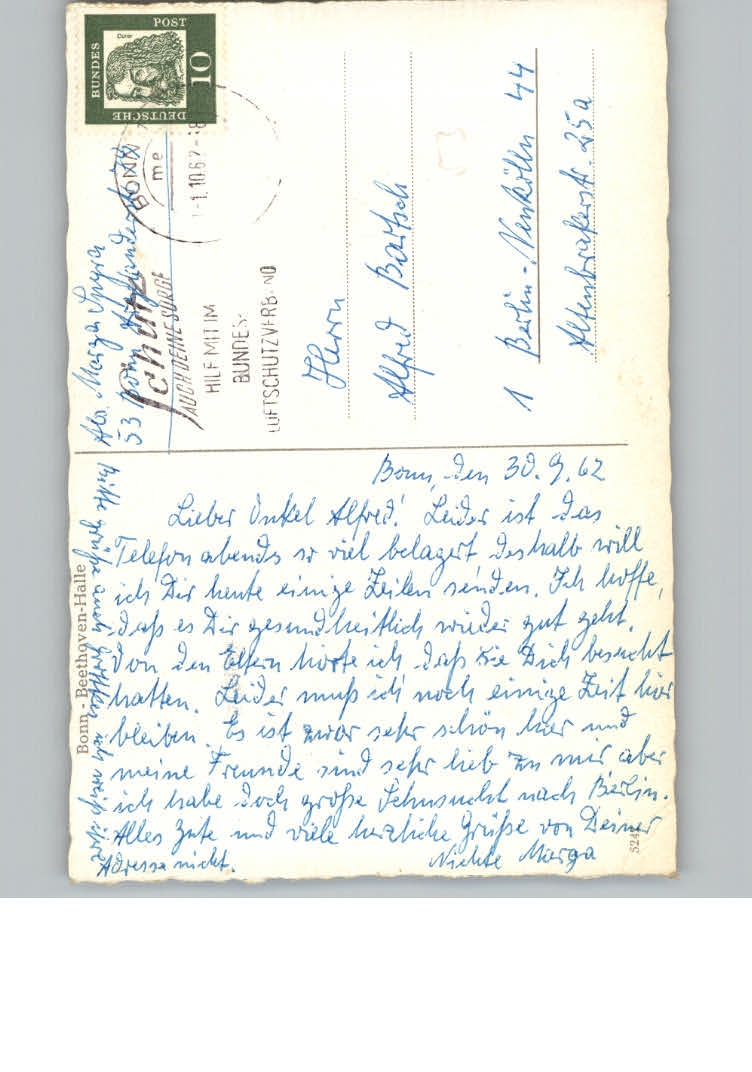 Bonn, den 30.9.62
Lieber Onkel Alfred! Leider ist das
Telefon abends so viel belagert deshalb will
ich Dir heute einige Zeilen senden. Ich hoffe,
daß es Dir gesundheitlich wieder gut geht.
Von den Eltern hörte ich daß sie Dich besucht
hatten. Leider muß ich noch einige Zeit hier
bleiben. Es ist zwar sehr schön hier und
meine Freunde sind sehr lieb zu mir aber
ich habe doch große Sehnsucht nach Berlin.
Alles Gute und viele herzliche Grüße von Deiner
Nichte Marga
Bitte grüße auch ich weiß ihre
Adresse nicht.
Bonn - Beethoven-Halle
524
Abs. Marga
53 Bonn
Herrn
Alfred Bartsch
1 Berlin-Neukölln 44
Altenbrakerstr. 25a
DEUTSCHE
BUNDES
POST
10
Dürer
BONN
me
-1.10.62-18
Schutz
AUCH DEINE SORGE
HILF MIT IM
BUNDES-
LUFTSCHUTZVERBAND